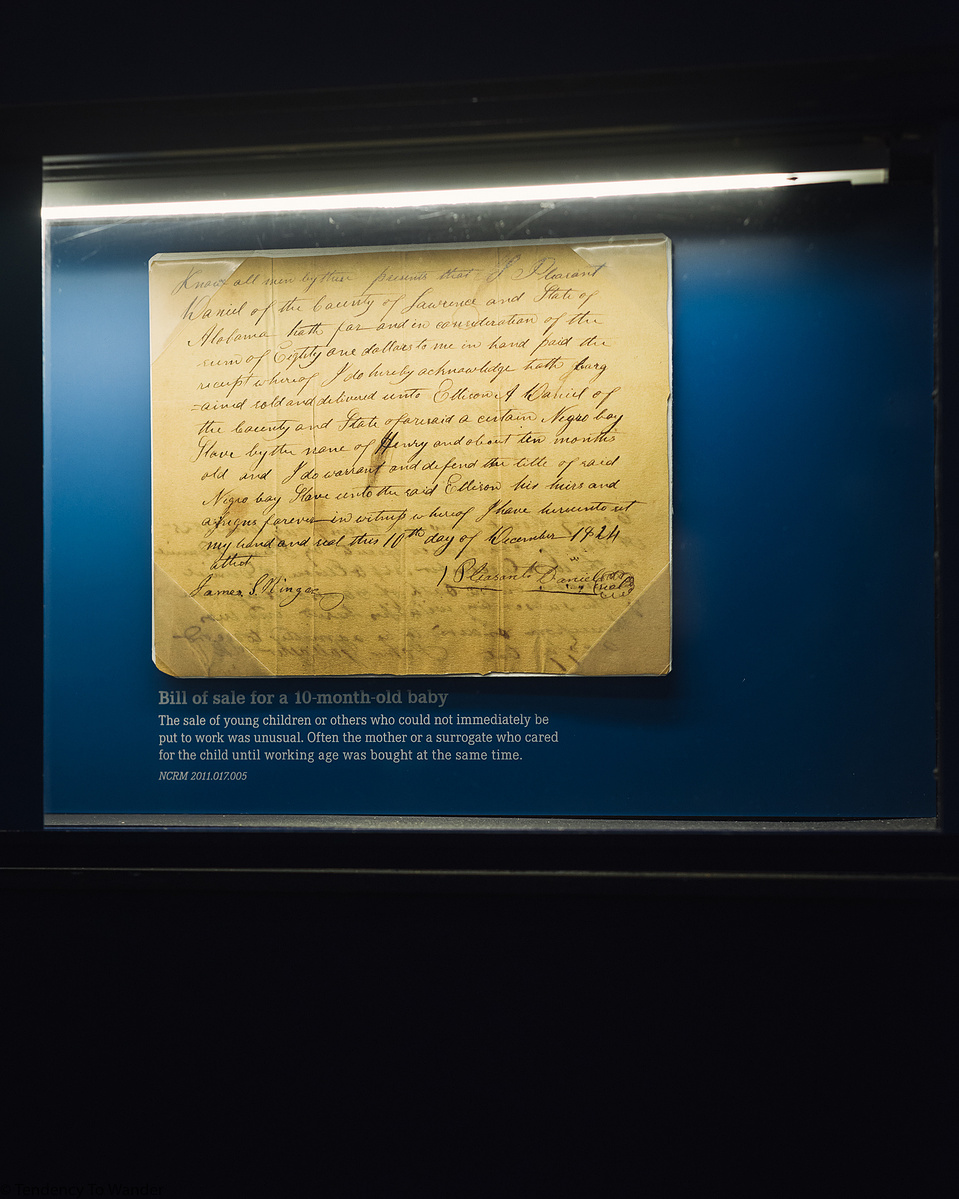 Know all men by these presents that I Pleasant
Daniel of the County of Lawrence and State of
Alabama hath for and in consideration of the
sum of Eighty one dollars to me in hand paid the
receipt whereof I do hereby acknowledge hath barg
=ained sold and delivered unto Ellison A Daniel of
the County and State aforesaid a certain Negro boy
Slave by the name of Henry and about ten months
old and I do warrant and defend the title of said
Negro boy Slave unto the said Ellison his heirs and
assigns forever in witness whereof I have hereunto set
my hand and seal this 10th day of December 1824
attest
James S. Pleasant Daniel
Bill of sale for a 10-month-old baby
The sale of young children or others who could not immediately be
put to work was unusual. Often the mother or a surrogate who cared
for the child until working age was bought at the same time.
NCRM 2011.017.005
© Tendency To Wander